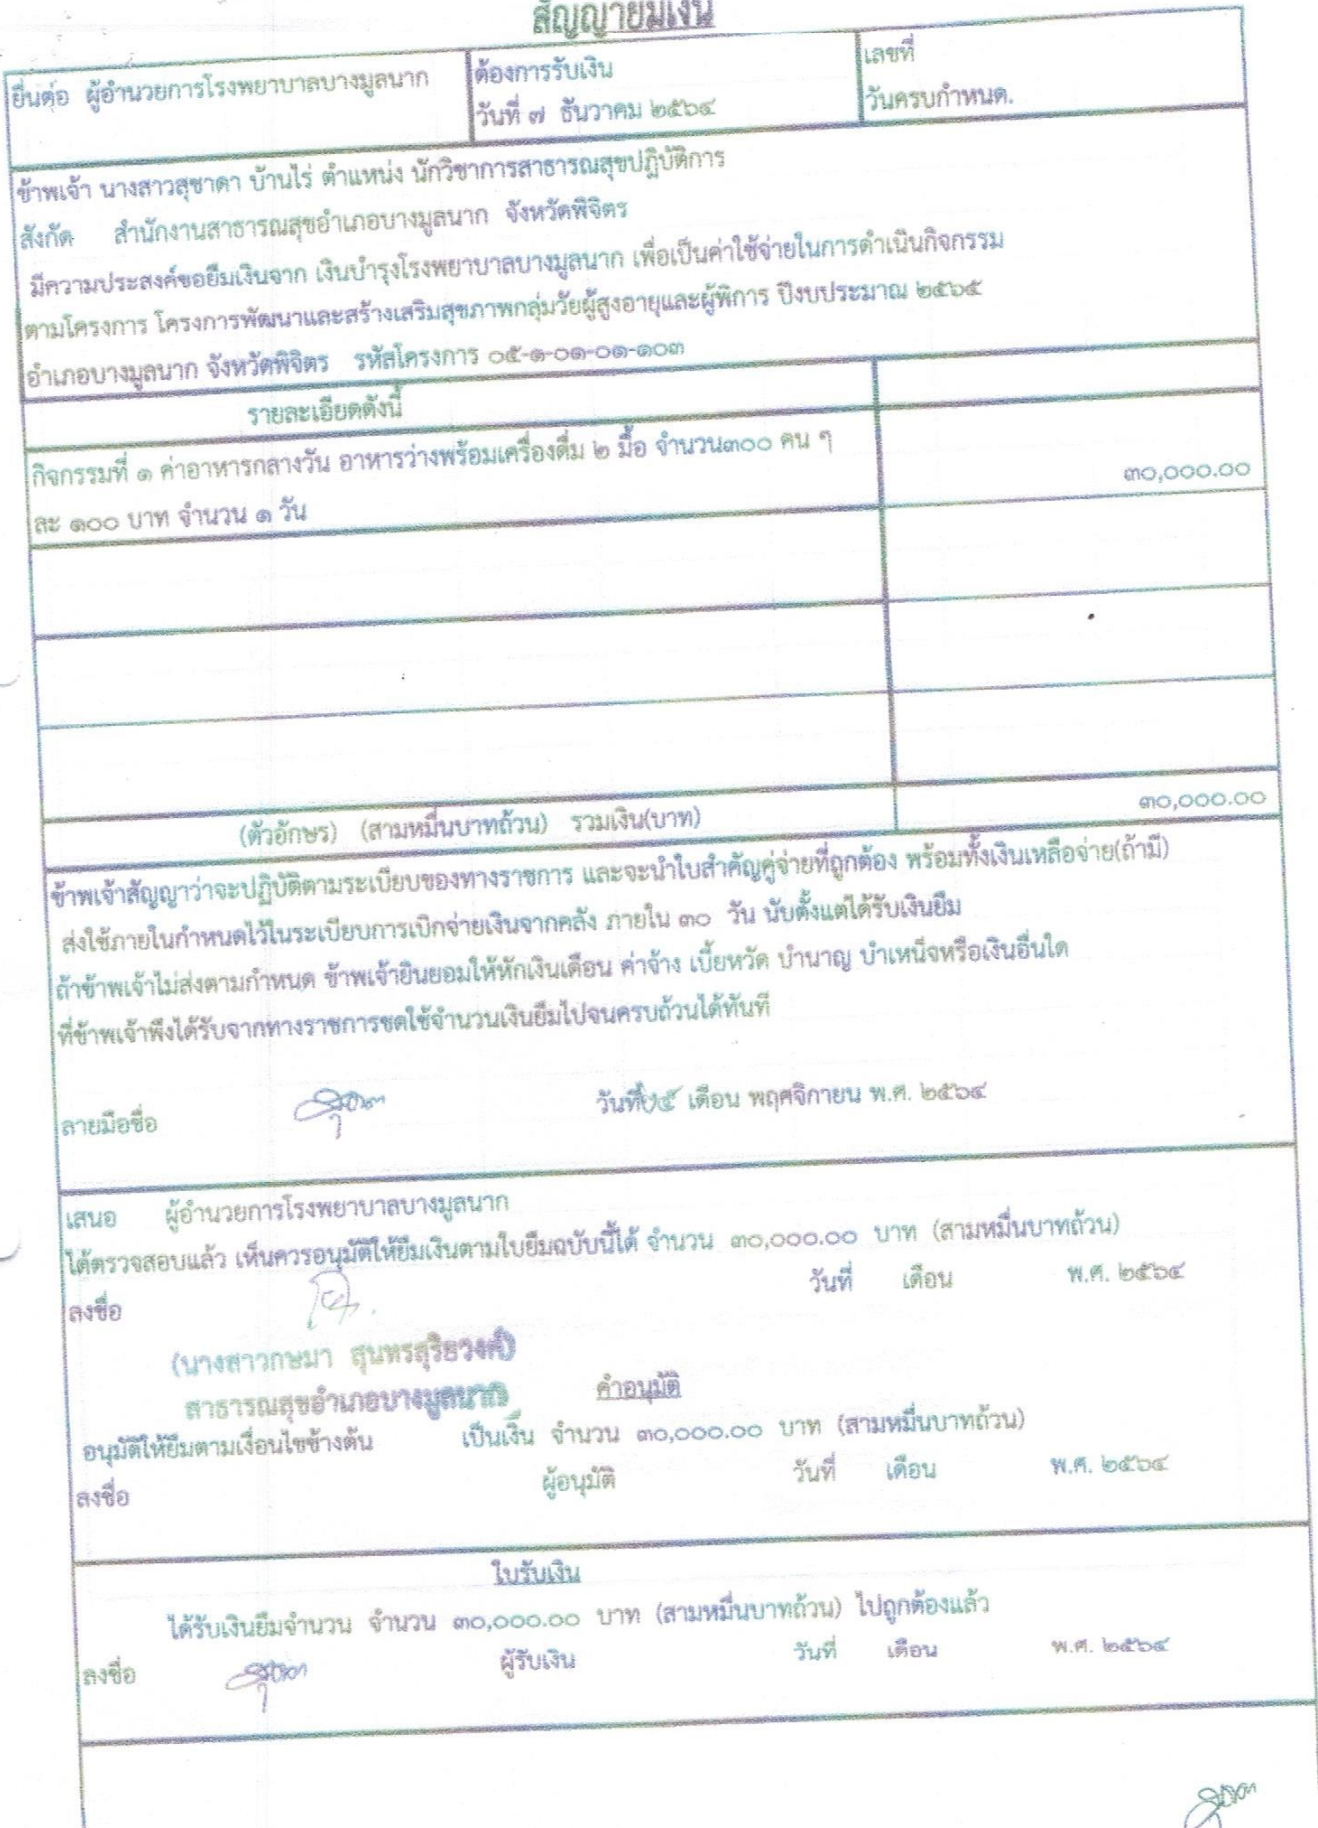 สัญญายืมเงิน
ยื่นต่อ ผู้อำนวยการโรงพยาบาลบางมูลนาก
ต้องการรับเงิน
วันที่ ๗ ธันวาคม ๒๕๖๔
เลขที่
วันครบกำหนด.
ข้าพเจ้า นางสาวสุชาดา บ้านไร่ ตำแหน่ง นักวิชาการสาธารณสุขปฏิบัติการ
สังกัด สำนักงานสาธารณสุขอำเภอบางมูลนาก จังหวัดพิจิตร
มีความประสงค์ขอยืมเงินจาก เงินบำรุงโรงพยาบาลบางมูลนาก เพื่อเป็นค่าใช้จ่ายในการดำเนินกิจกรรม
ตามโครงการ โครงการพัฒนาและสร้างเสริมสุขภาพกลุ่มวัยผู้สูงอายุและผู้พิการ ปีงบประมาณ ๒๕๖๕
อำเภอบางมูลนาก จังหวัดพิจิตร รหัสโครงการ ๐๕-๑-๐๑-๐๑-๑๐๓
รายละเอียดดังนี้
กิจกรรมที่ ๑ ค่าอาหารกลางวัน อาหารว่างพร้อมเครื่องดื่ม ๒ มื้อ จำนวน๓๐๐ คน ๆ
ละ ๑๐๐ บาท จำนวน ๑ วัน
๓๐,๐๐๐.๐๐
(ตัวอักษร) (สามหมื่นบาทถ้วน) รวมเงิน(บาท)
๓๐,๐๐๐.๐๐
ข้าพเจ้าสัญญาว่าจะปฏิบัติตามระเบียบของทางราชการ และจะนำใบสำคัญคู่จ่ายที่ถูกต้อง พร้อมทั้งเงินเหลือจ่าย(ถ้ามี)
ส่งใช้ภายในกำหนดไว้ในระเบียบการเบิกจ่ายเงินจากคลัง ภายใน ๓๐ วัน นับตั้งแต่ได้รับเงินยืม
ถ้าข้าพเจ้าไม่ส่งตามกำหนด ข้าพเจ้ายินยอมให้หักเงินเดือน ค่าจ้าง เบี้ยหวัด บำนาญ บำเหน็จหรือเงินอื่นใด
ที่ข้าพเจ้าพึงได้รับจากทางราชการชดใช้จำนวนเงินยืมไปจนครบถ้วนได้ทันที
ลายมือชื่อ วันที่ ๒๕ เดือน พฤศจิกายน พ.ศ. ๒๕๖๔
เสนอ ผู้อำนวยการโรงพยาบาลบางมูลนาก
ได้ตรวจสอบแล้ว เห็นควรอนุมัติให้ยืมเงินตามใบยืมฉบับนี้ได้ จำนวน ๓๐,๐๐๐.๐๐ บาท (สามหมื่นบาทถ้วน)
ลงชื่อ วันที่ เดือน พ.ศ. ๒๕๖๔
(นางสาวกษมา สุนทรสุริยวงศ์)
สาธารณสุขอำเภอบางมูลนาก
คำอนุมัติ
อนุมัติให้ยืมตามเงื่อนไขข้างต้น เป็นเงิน จำนวน ๓๐,๐๐๐.๐๐ บาท (สามหมื่นบาทถ้วน)
ลงชื่อ ผู้อนุมัติ วันที่ เดือน พ.ศ. ๒๕๖๔
ใบรับเงิน
ได้รับเงินยืมจำนวน จำนวน ๓๐,๐๐๐.๐๐ บาท (สามหมื่นบาทถ้วน) ไปถูกต้องแล้ว
ลงชื่อ ผู้รับเงิน วันที่ เดือน พ.ศ. ๒๕๖๔